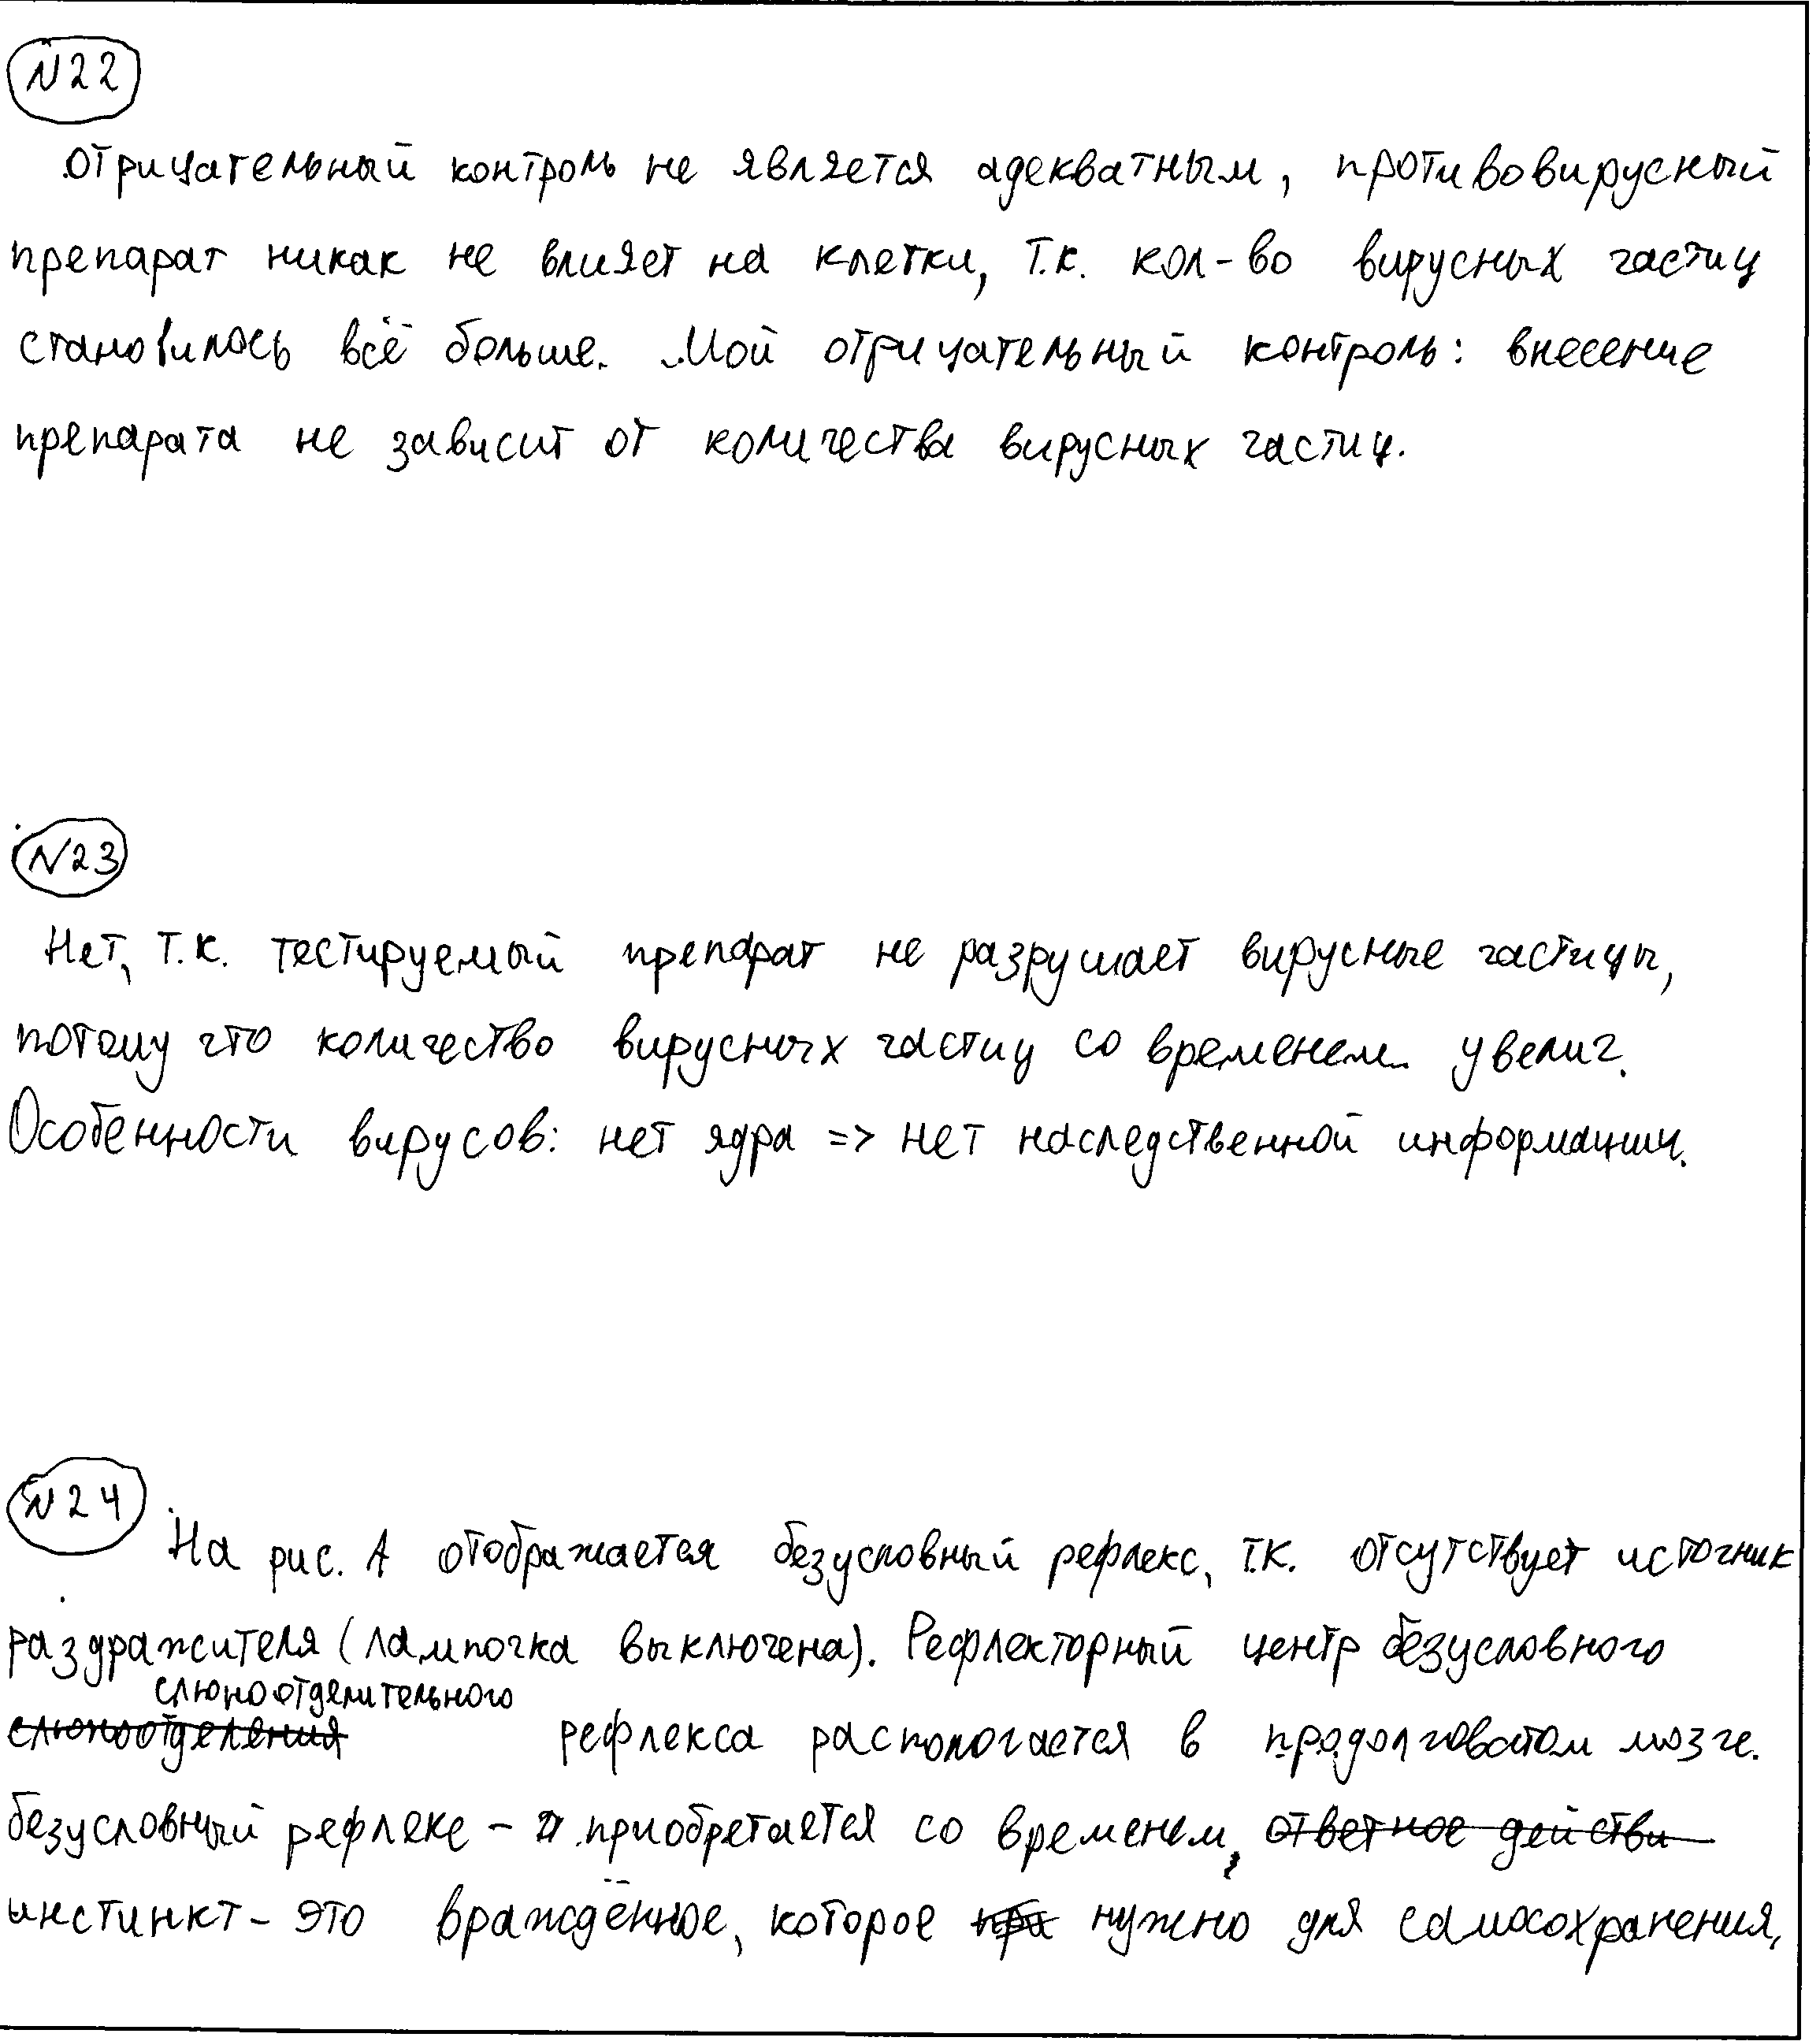 N22
Отрицательный контроль не является адекватным, противовирусный
препарат никак не влияет на клетки, т.к. кол-во вирусных частиц
становилось всё больше. Мой отрицательный контроль: внесение
препарата не зависит от количества вирусных частиц.
N23
Нет, т.к. тестируемый препарат не разрушает вирусные частицы,
потому что количество вирусных частиц со временем увелич.
Особенности вирусов: нет ядра => нет наследственной информации.
N24
На рис. А отображается безусловный рефлекс, т.к. отсутствует источник
раздражителя (лампочка выключена). Рефлекторный центр безусловного
слюноотделительного
слюноотделения рефлекса распологается в продолговатом мозге.
безусловный рефлекс - приобретается со временем, ответное действи
инстинкт - это врождённое, которое при нужно для самосохранения,